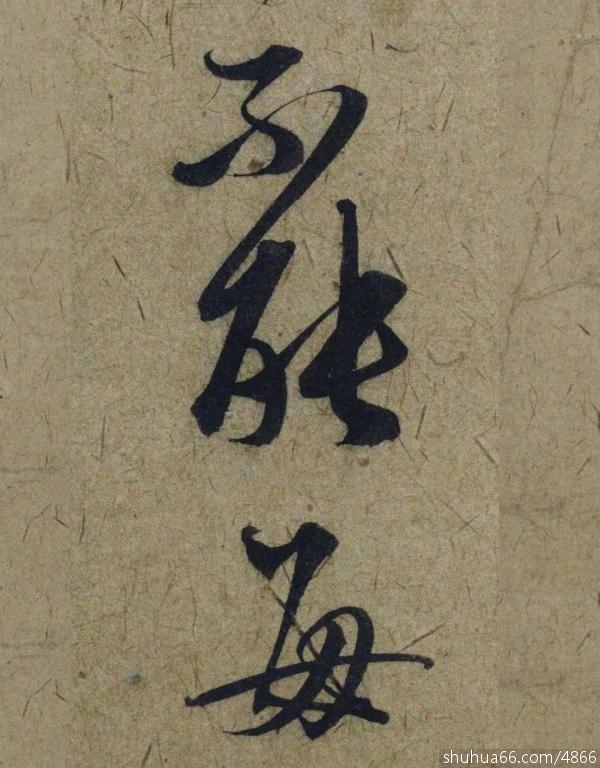 不能每
shuhua66.com/4866